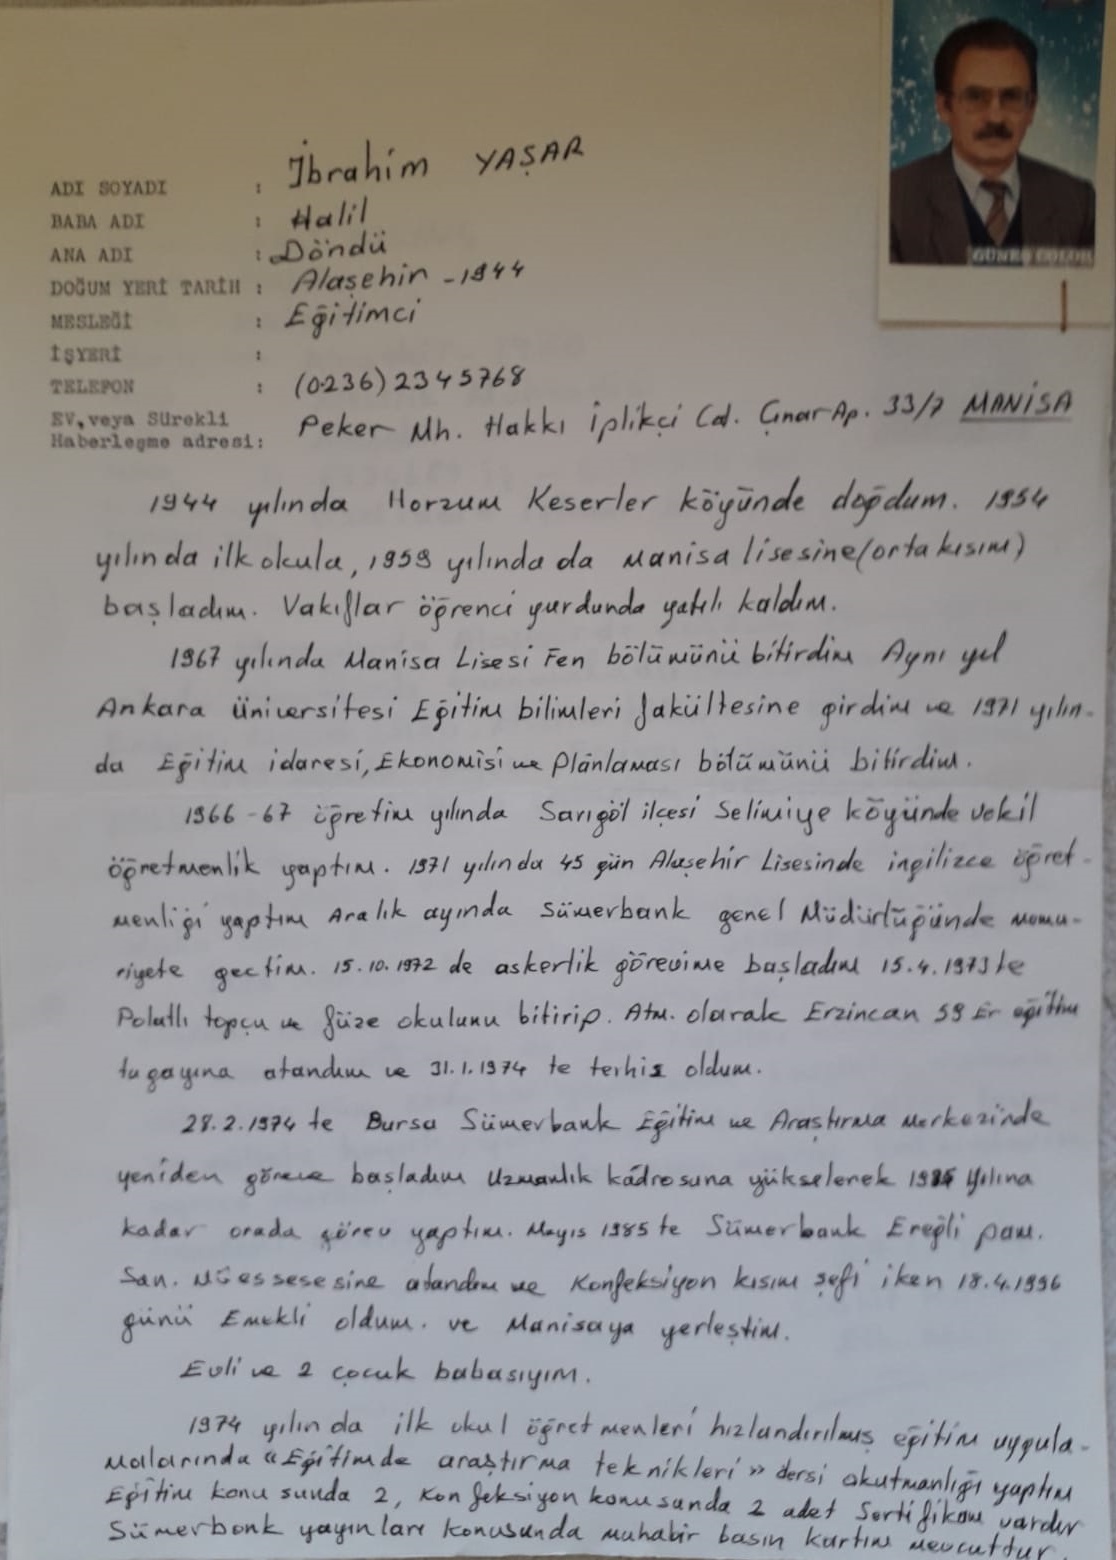 ADI SOYADI : İbrahim YAŞAR
BABA ADI : Halil
ANA ADI : Döndü
DOĞUM YERİ TARİH : Alaşehir - 1944
MESLEĞİ : Eğitimci
İŞYERİ :
TELEFON : (0236) 2345768
EV, veya Sürekli
Haberleşme adresi: Peker Mh. Hakkı İplikçi Cd. Çınar Ap. 33/7 MANİSA
1944 yılında Horzum Keserler köyünde doğdum. 1954
yılında ilk okula, 1959 yılında da Manisa lisesine (orta kısım)
başladım. Vakıflar öğrenci yurdunda yatılı kaldım.
1967 yılında Manisa Lisesi Fen bölümünü bitirdim Aynı yıl
Ankara Üniversitesi Eğitim bilimleri fakültesine girdim ve 1971 yılın-
da Eğitim idaresi, Ekonomisi ve Plânlaması bölümünü bitirdim.
1966-67 öğretim yılında Sarıgöl ilçesi Selimiye köyünde vekil
öğretmenlik yaptım. 1971 yılında 45 gün Alaşehir Lisesinde ingilizce öğret-
menliği yaptım Aralık ayında Sümerbank genel Müdürlüğünde memu-
riyete geçtim. 15.10.1972 de askerlik görevime başladım 15.4.1973 te
Polatlı topçu ve füze okulunu bitirip. Atm. olarak Erzincan 59 Er eğitim
tugayına atandım ve 31.1.1974 te terhis oldum.
28.2.1974 te Bursa Sümerbank Eğitim ve Araştırma Merkezinde
yeniden göreve başladım Uzmanlık kâdrosuna yükselerek 1985 yılına
kadar orada görev yaptım. Mayıs 1985 te Sümerbank Ereğli pam.
San. Müessesesine atandım ve Konfeksiyon kısım şefi iken 18.4.1996
günü Emekli oldum. ve Manisaya yerleştim.
Evli ve 2 çocuk babasıyım.
1974 yılında ilk okul öğretmenleri hızlandırılmış eğitim uygula-
malarında «Eğitimde araştırma teknikleri» dersi okutmanlığı yaptım
Eğitim konusunda 2, Konfeksiyon konusunda 2 adet Sertifikam vardır
Sümerbank yayınları konusunda muhabir basın kartım mevcuttur.